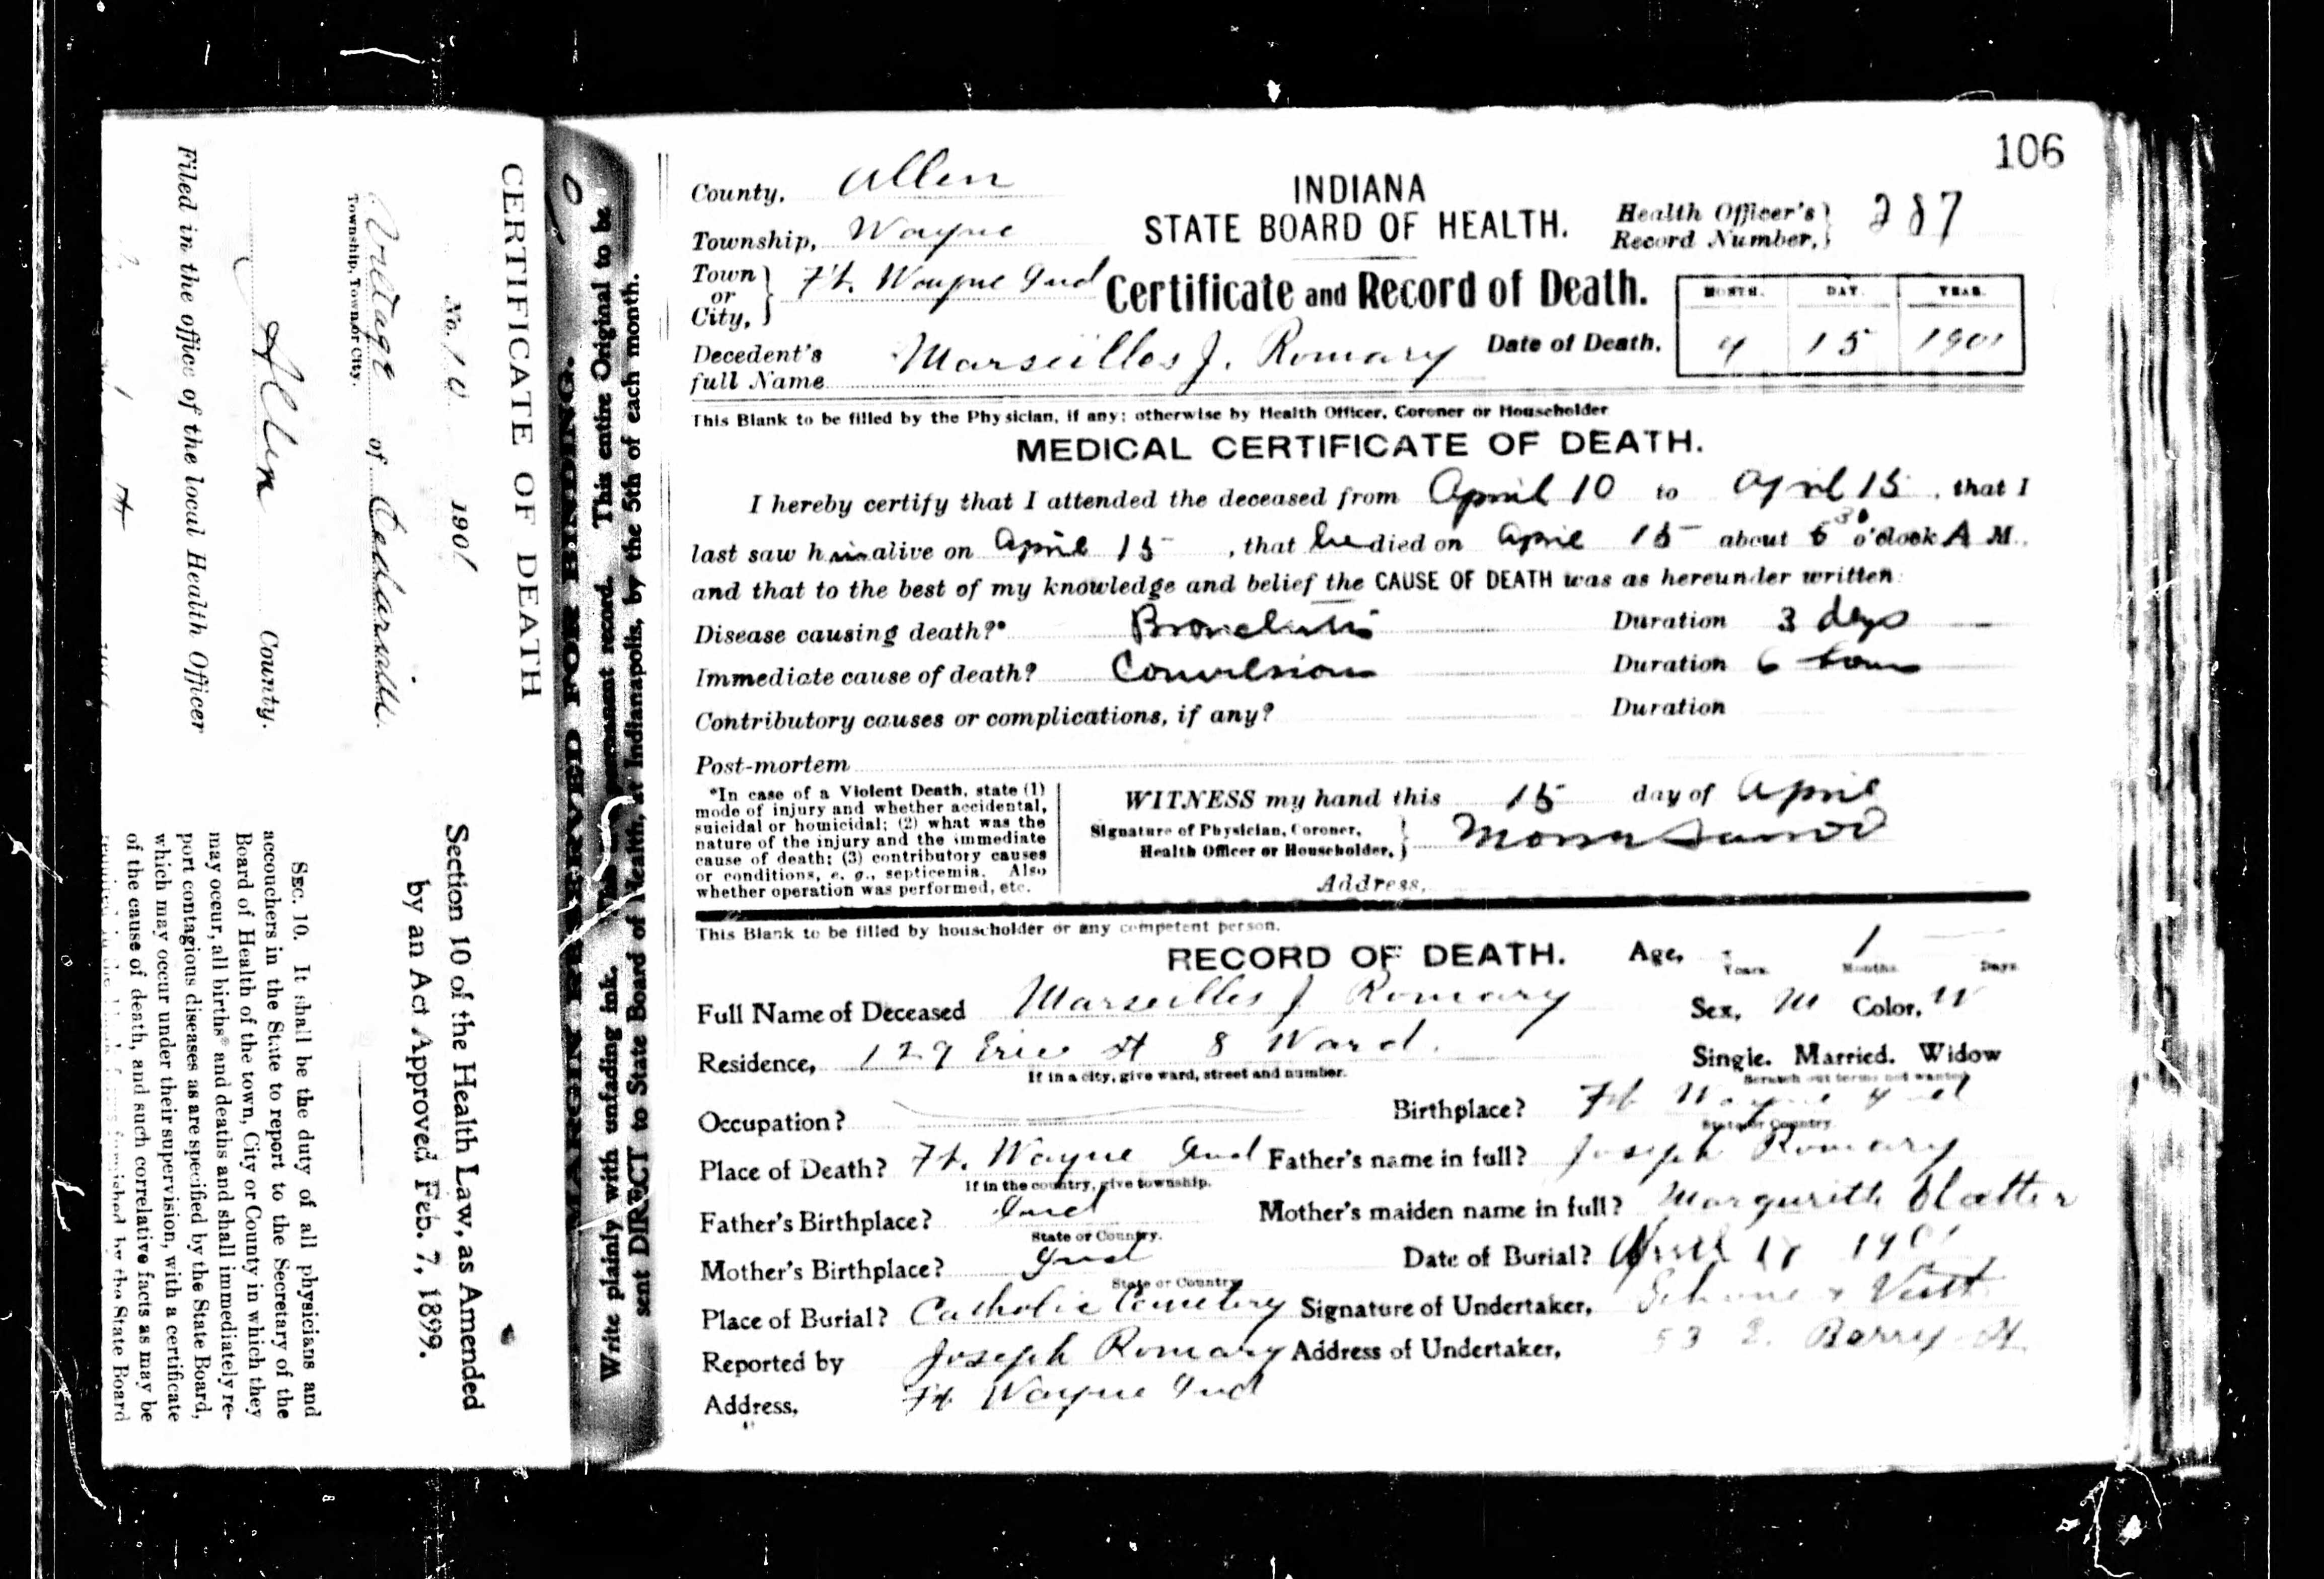 106
County, Allen
INDIANA
Township, Wayne
STATE BOARD OF HEALTH.
Health Officer's Record Number, 287
Town or City, Ft. Wayne Ind
Certificate and Record of Death.
MONTH. DAY. YEAR.
Decedent's full Name Marseilles J. Romary
Date of Death, 4 15 1901
This Blank to be filled by the Physician, if any; otherwise by Health Officer, Coroner or Householder
MEDICAL CERTIFICATE OF DEATH.
I hereby certify that I attended the deceased from April 10 to April 15, that I
last saw him alive on April 15, that he died on April 15 about 6 30 o'clock A M.
and that to the best of my knowledge and belief the CAUSE OF DEATH was as hereunder written:
Disease causing death?* Bronchitis Duration 3 days
Immediate cause of death? Convulsions Duration 6 hours
Contributory causes or complications, if any? Duration
Post-mortem
*In case of a Violent Death, state (1)
mode of injury and whether accidental,
suicidal or homicidal; (2) what was the
nature of the injury and the immediate
cause of death; (3) contributory causes
or conditions, e. g., septicemia. Also
whether operation was performed, etc.
WITNESS my hand this 15 day of April
Signature of Physician, Coroner,
Health Officer or Householder,
Address,
This Blank to be filled by householder or any competent person.
RECORD OF DEATH. Age, Years 1 Months Days
Full Name of Deceased Marseilles J Romary Sex, M Color, W
Residence, 129 Erie St 8 Ward. Single. Married. Widow
If in a city, give ward, street and number. Scratch out terms not wanted
Occupation? Birthplace? Ft Wayne Ind
State or Country
Place of Death? Ft. Wayne Ind Father's name in full? Joseph Romary
If in the country, give township.
Father's Birthplace? Ind Mother's maiden name in full? Margurith Blatter
State or Country.
Mother's Birthplace? Ind Date of Burial? April 17 1901
State or Country
Place of Burial? Catholic Cemetery Signature of Undertaker, Schone & Veith
Reported by Joseph Romary Address of Undertaker, 53 E. Berry St.
Address, Ft Wayne Ind
MARGIN RESERVED FOR BINDING.
Write plainly with unfading ink. This is a permanent record. This entire Original to be
sent DIRECT to State Board of Health, at Indianapolis, by the 5th of each month.
CERTIFICATE OF DEATH
No. 10 1901
of Cedarville.
Township, Town or City.
Allen County.
Filed in the office of the local Health Officer
Section 10 of the Health Law, as Amended
by an Act Approved Feb. 7, 1899.
SEC. 10. It shall be the duty of all physicians and
accouchers in the State to report to the Secretary of the
Board of Health of the town, City or County in which they
may occur, all births* and deaths and shall immediately re-
port contagious diseases as are specified by the State Board,
which may occur under their supervision, with a certificate
of the cause of death, and such correlative facts as may be
furnished by the State Board